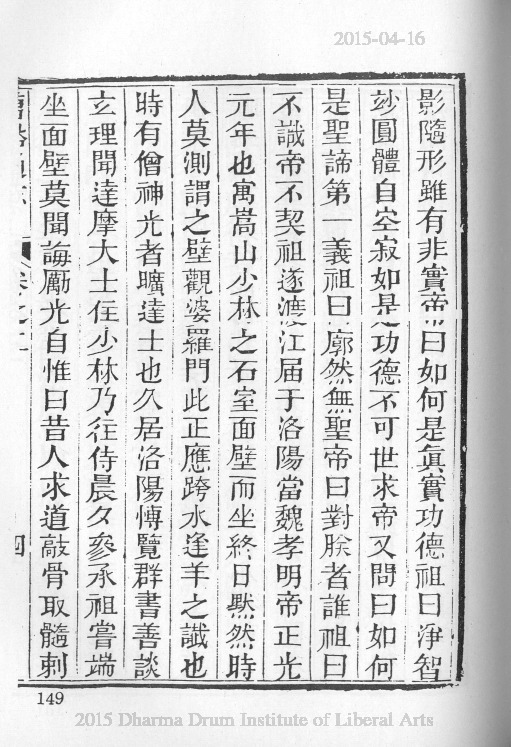 2015-04-16
影隨形雖有非實帝曰如何是眞實功德祖曰淨智
玅圓體自空寂如是功德不可世求帝又問曰如何
是聖諦第一義祖曰廓然無聖帝曰對朕者誰祖曰
不識帝不契祖遂渡江届于洛陽當魏孝明帝正光
元年也寓嵩山少林之石室面壁而坐終日默然時
人莫測謂之壁觀婆羅門此正應跨水逢羊之讖也
時有僧神光者曠達士也久居洛陽愽覽群書善談
玄理聞達摩大士住少林乃往侍晨夕參承祖嘗端
坐面壁莫聞誨勵光自惟曰昔人求道敲骨取髓刺
卷之二
四
149
2015 Dharma Drum Institute of Liberal Arts